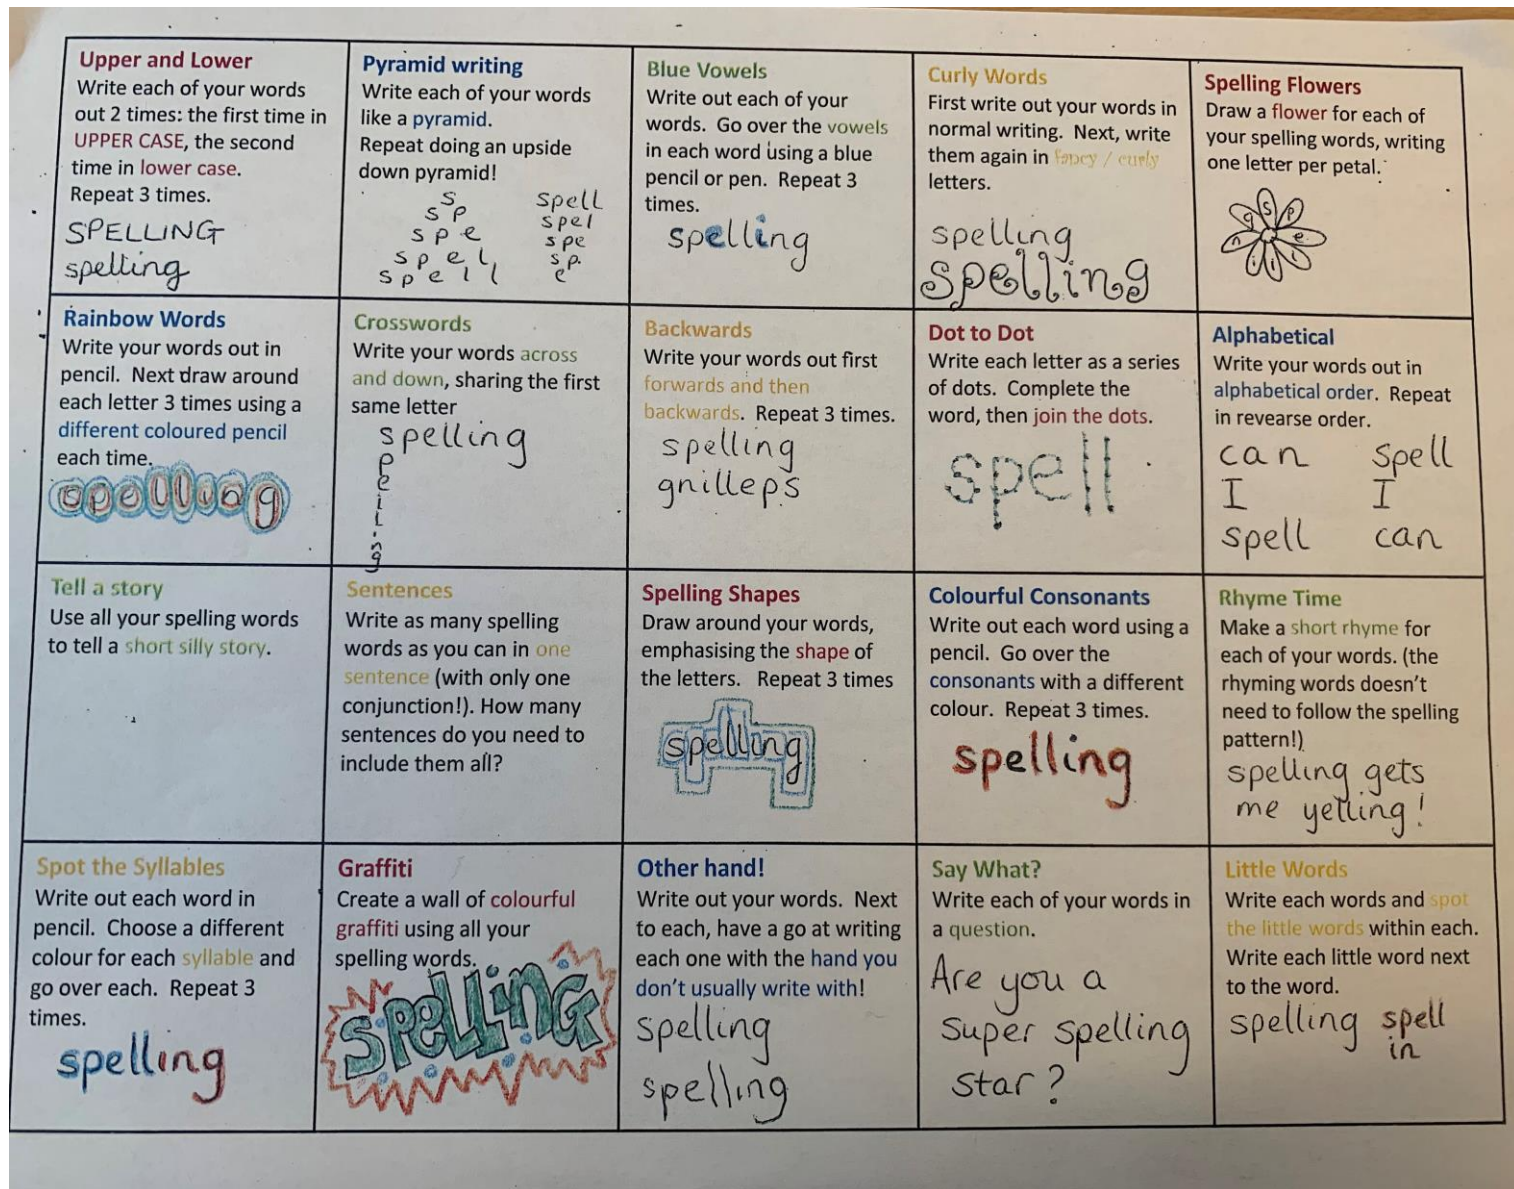 Upper and Lower
Write each of your words
out 2 times: the first time in
UPPER CASE, the second
time in lower case.
Repeat 3 times.
SPELLING
spelling
Pyramid writing
Write each of your words
like a pyramid.
Repeat doing an upside
down pyramid!
s
s p
s p e
s p e l
s p e l l
spell
spel
spe
sp.
e
Blue Vowels
Write out each of your
words. Go over the vowels
in each word using a blue
pencil or pen. Repeat 3
times.
spelling
Curly Words
First write out your words in
normal writing. Next, write
them again in fancy / curly
letters.
spelling
spelling
Spelling Flowers
Draw a flower for each of
your spelling words, writing
one letter per petal.
s p e l l i n g
Rainbow Words
Write your words out in
pencil. Next draw around
each letter 3 times using a
different coloured pencil
each time.
spelling
Crosswords
Write your words across
and down, sharing the first
same letter
spelling
p
e
l
l
i
n
g
Backwards
Write your words out first
forwards and then
backwards. Repeat 3 times.
spelling
gnilleps
Dot to Dot
Write each letter as a series
of dots. Complete the
word, then join the dots.
spell
Alphabetical
Write your words out in
alphabetical order. Repeat
in revearse order.
can spell
I I
spell can
Tell a story
Use all your spelling words
to tell a short silly story.
Sentences
Write as many spelling
words as you can in one
sentence (with only one
conjunction!). How many
sentences do you need to
include them all?
Spelling Shapes
Draw around your words,
emphasising the shape of
the letters. Repeat 3 times
spelling
Colourful Consonants
Write out each word using a
pencil. Go over the
consonants with a different
colour. Repeat 3 times.
spelling
Rhyme Time
Make a short rhyme for
each of your words. (the
rhyming words doesn't
need to follow the spelling
pattern!)
spelling gets
me yelling!
Spot the Syllables
Write out each word in
pencil. Choose a different
colour for each syllable and
go over each. Repeat 3
times.
spelling
Graffiti
Create a wall of colourful
graffiti using all your
spelling words.
SPelliNG
Other hand!
Write out your words. Next
to each, have a go at writing
each one with the hand you
don't usually write with!
spelling
spelling
Say What?
Write each of your words in
a question.
Are you a
super spelling
star?
Little Words
Write each words and spot
the little words within each.
Write each little word next
to the word.
spelling spell
in